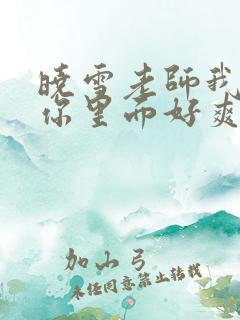 晓雪老师我
你里面好爽
加山弓
未经同意禁止转载